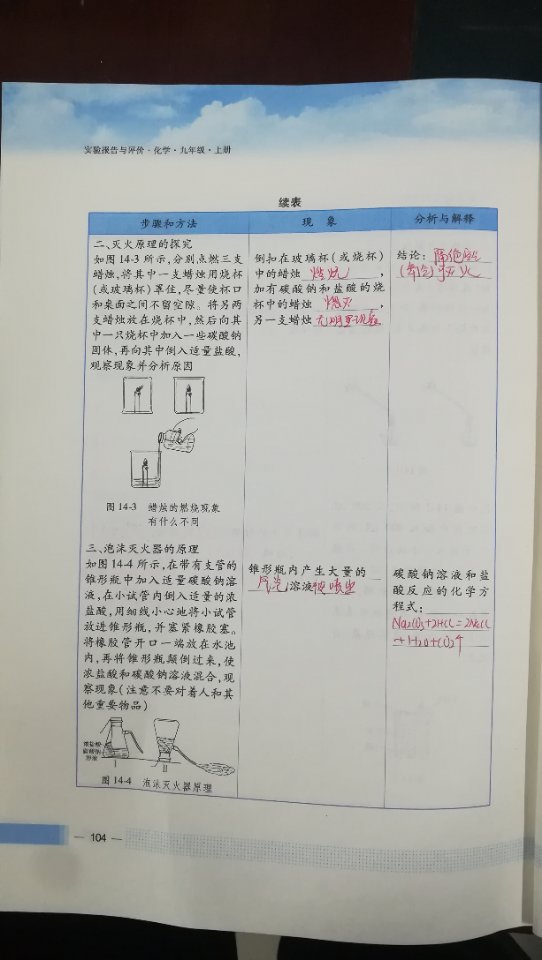 实验报告与评价·化学·九年级·上册
续表
步骤和方法
现 象
分析与解释
二、灭火原理的探究
如图14-3所示,分别点燃三支
蜡烛,将其中一支蜡烛用烧杯
(或玻璃杯)罩住,尽量使杯口
和桌面之间不留空隙。将另两
支蜡烛放在烧杯中,然后向其
中一只烧杯中加入一些碳酸钠
固体,再向其中倒入适量盐酸,
观察现象并分析原因
图14-3 蜡烛的燃烧现象
有什么不同
倒扣在玻璃杯(或烧杯)
中的蜡烛 熄灭 ,
加有碳酸钠和盐酸的烧
杯中的蜡烛 熄灭 ,
另一支蜡烛 无明显现象
结论:
灭火
三、泡沫灭火器的原理
如图14-4所示,在带有支管的
锥形瓶中加入适量碳酸钠溶
液,在小试管内倒入适量的浓
盐酸,用细线小心地将小试管
放进锥形瓶,并塞紧橡胶塞。
将橡胶管开口一端放在水池
内,再将锥形瓶颠倒过来,使
浓盐酸和碳酸钠溶液混合,观
察现象(注意不要对着人和其
他重要物品)
浓盐酸
碳酸钠
溶液
I
II
图14-4 泡沫灭火器原理
锥形瓶内产生大量的
气泡 溶液被喷出
碳酸钠溶液和盐
酸反应的化学方
程式:
Na2CO3+2HCl=2NaCl
+H2O+CO2↑
— 104 —